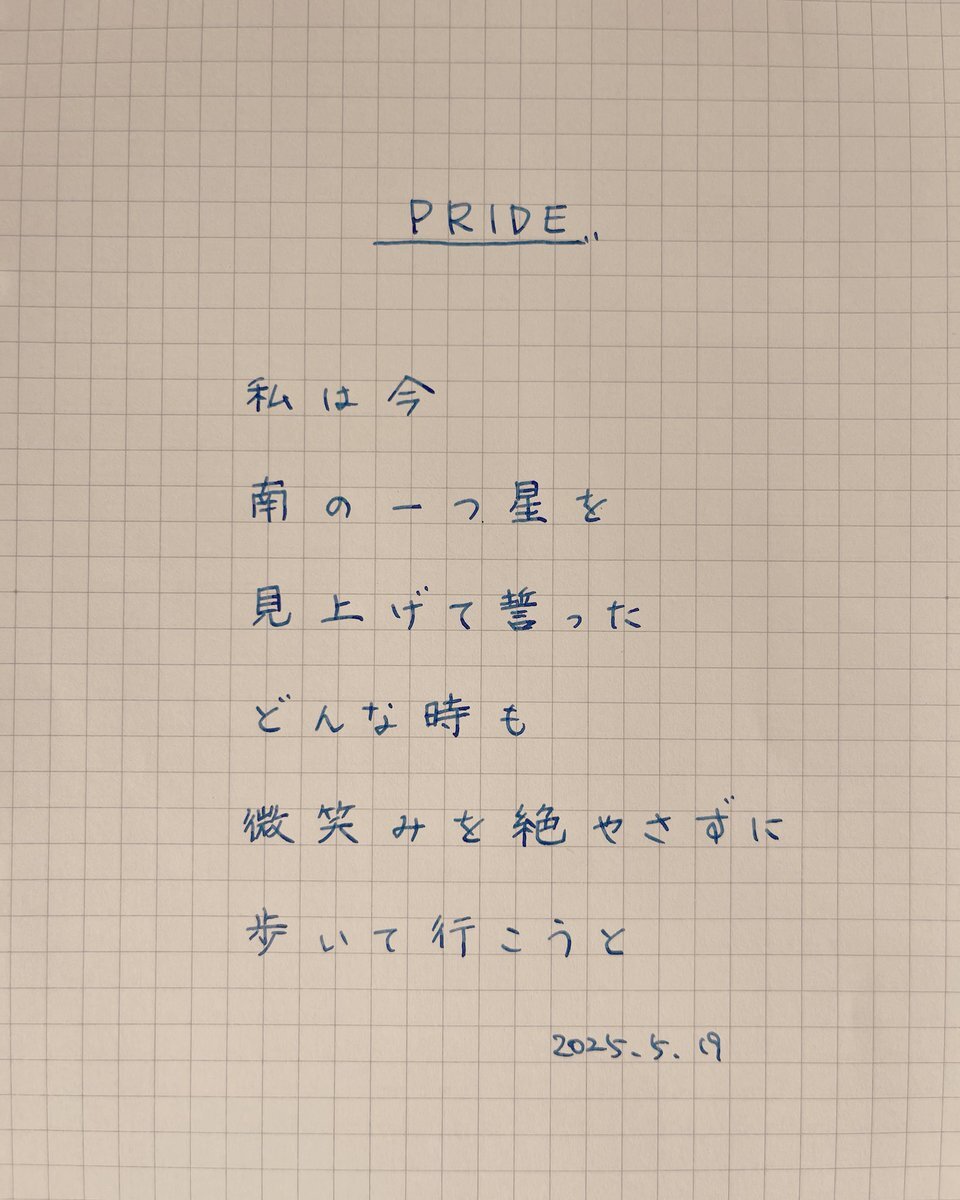 PRIDE..
私は今
南の一つ星を
見上げて誓った
どんな時も
微笑みを絶やさずに
歩いて行こうと
2025.5.19